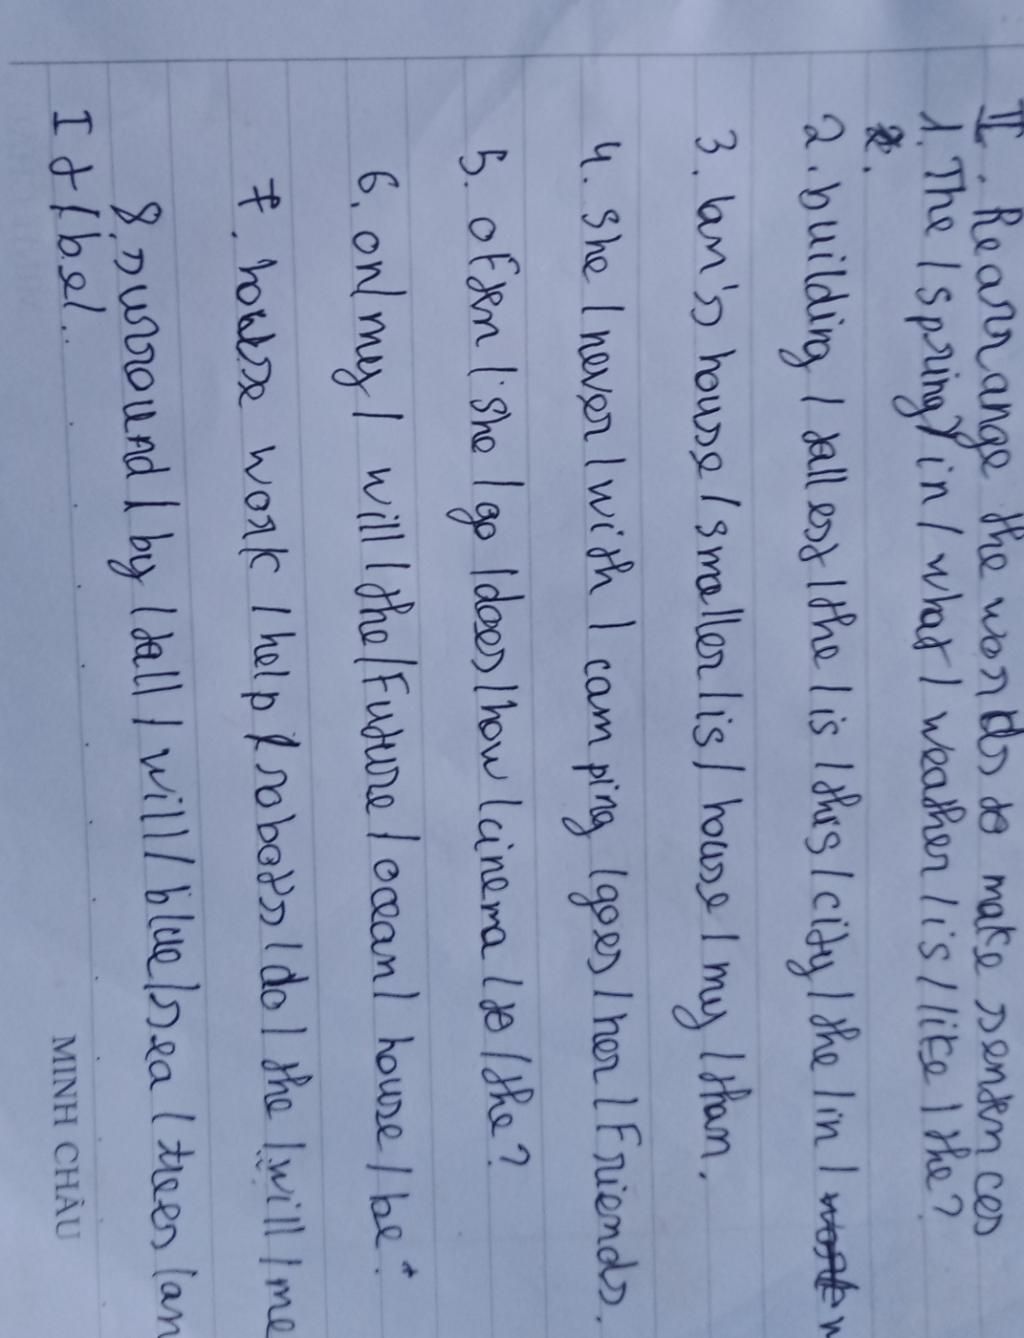 II. Rearrange the words to make sentences
1. The / spring / in / what / weather / is / like / the?
2.
2. building / tallest / the / is / this / city / the / in /
3. lan's house / smaller / is / house / my / than.
4. she / never / with / camping / goes / her / Friends.
5. often / she / go / does / how / cinema / to / the?
6. on / my / will / the / Future / ocean / house / be.
7. house work / help / robots / do / the / will / me
8. surround / by / tall / will / blue / sea / trees / an
It / be /..
MINH CHÂU